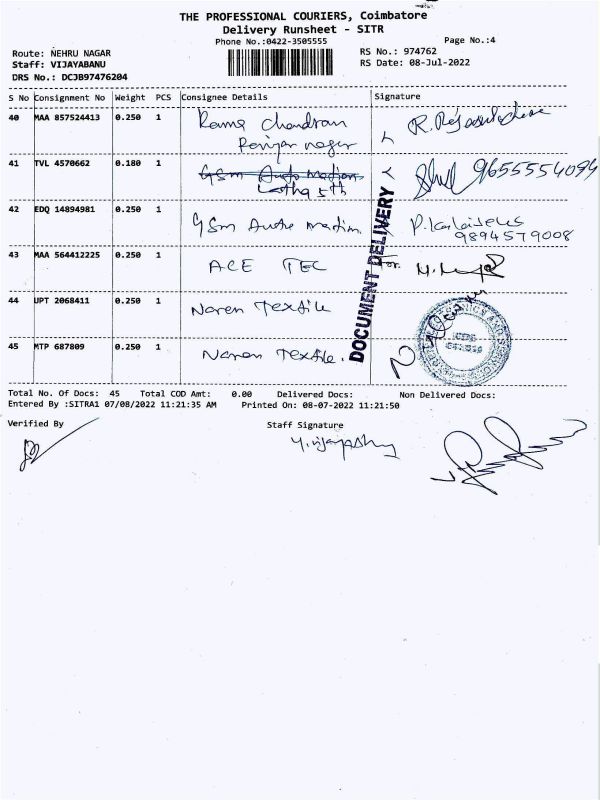 THE PROFESSIONAL COURIERS, Coimbatore
Delivery Runsheet - SITR
Phone No.:0422-3505555
Page No.:4
Route: NEHRU NAGAR
RS No.: 974762
Staff: VIJAYABANU
RS Date: 08-Jul-2022
DRS No.: DCJB97476204
S No Consignment No Weight PCS Consignee Details Signature
40 MAA 857524413 0.250 1 Rama Chandran
Periyar nagar
41 TVL 4570662 0.180 1 GSm Auto Mation 9655554094
5th
42 EDQ 14894981 0.250 1 GSm
9894579008
43 MAA 564412225 0.250 1 ACE TEC For.
44 UPT 2068411 0.250 1 Naren Textile
45 MTP 687809 0.250 1 Naren Textile.
DOCUMENT DELIVERY
Total No. Of Docs: 45 Total COD Amt: 0.00 Delivered Docs: Non Delivered Docs:
Entered By :SITRA1 07/08/2022 11:21:35 AM Printed On: 08-07-2022 11:21:50
Verified By Staff Signature